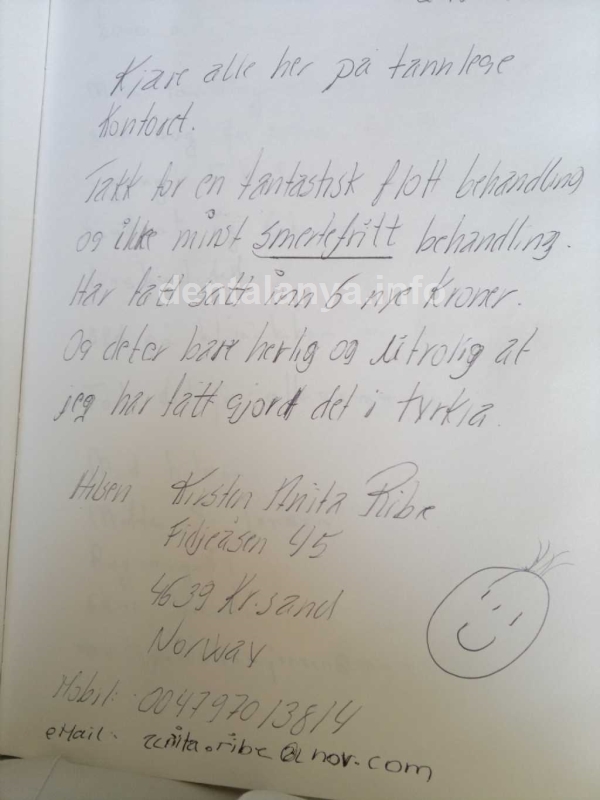 Kjære alle her på tannlege
Kontoret.
Takk for en fantastisk flott behandling
og ikke minst smertefritt behandling.
Har fått satt inn 6 nye Kroner.
dentalanya.info
Og det er bare herlig og utrolig at
jeg har fått gjort det i tyrkia.
Hilsen Kirsten Anita Ribe
Fidjeåsen 45
4639 Kr.sand
Norway
Mobil: 004797013814
eMail-